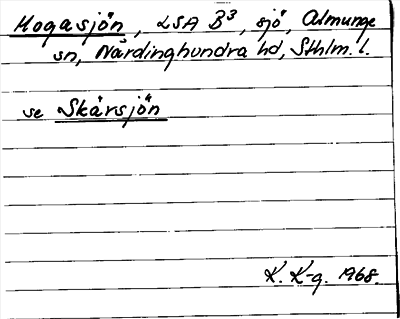 Hogasjön, LSA B3, sjö, Almunge
sn, Närdinghundra hd, Sthlm. l.
se Skärsjön
K. K-g. 1968.